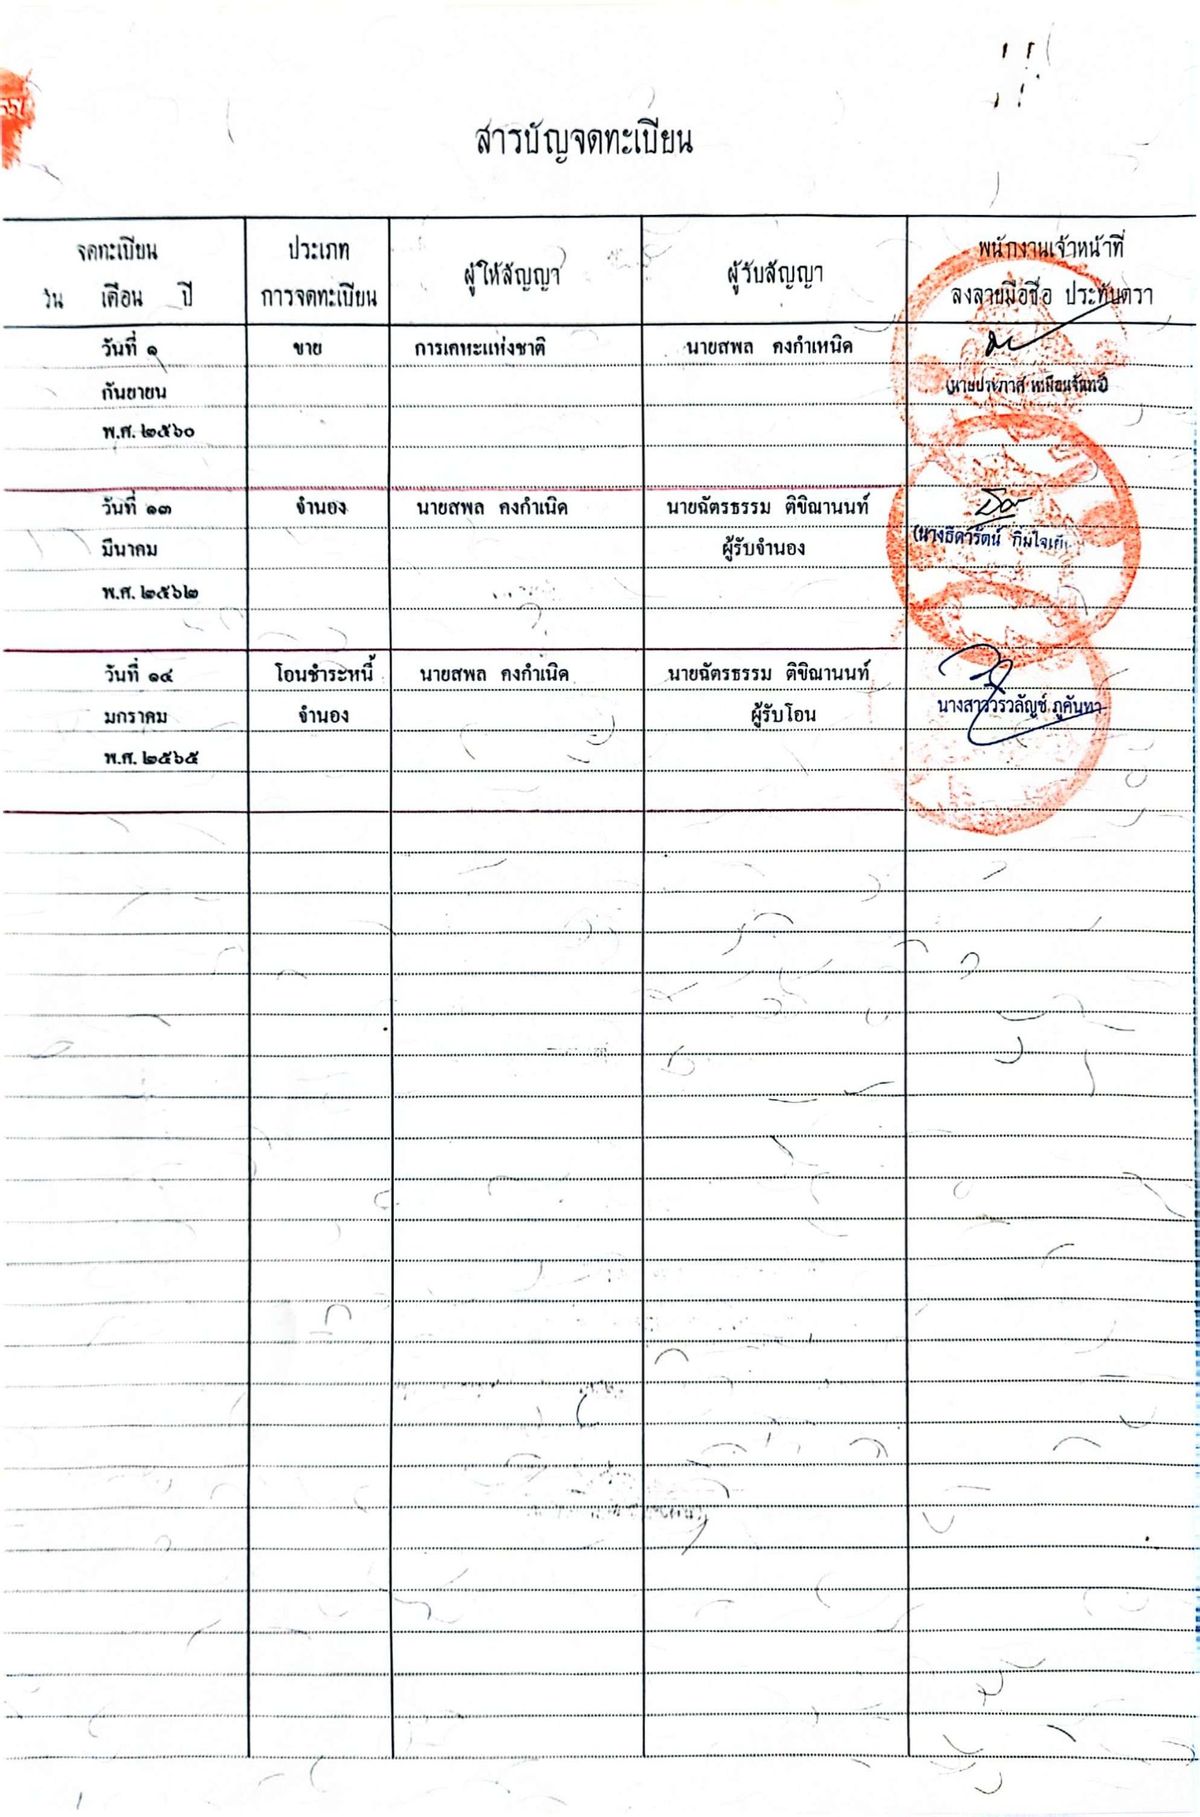 สารบัญจดทะเบียน
จดทะเบียน
วัน เดือน ปี
ประเภท
การจดทะเบียน
ผู้ให้สัญญา
ผู้รับสัญญา
พนักงานเจ้าหน้าที่
ลงลายมือชื่อ ประทับตรา
วันที่ ๑ ขาย การเคหะแห่งชาติ นายสพล คงกำเหนิด
กันยายน
พ.ศ. ๒๕๖๐
วันที่ ๑๓ จำนอง นายสพล คงกำเนิด นายฉัตรธรรม ติขิณานนท์
(นางธิดารัตน์
มีนาคม ผู้รับจำนอง
พ.ศ. ๒๕๖๒
วันที่ ๑๔ โอนชำระหนี้ นายสพล คงกำเนิด นายฉัตรธรรม ติขิณานนท์
นางสาววรวลัญช์ ภูคันทา
มกราคม จำนอง ผู้รับโอน
พ.ศ. ๒๕๖๕